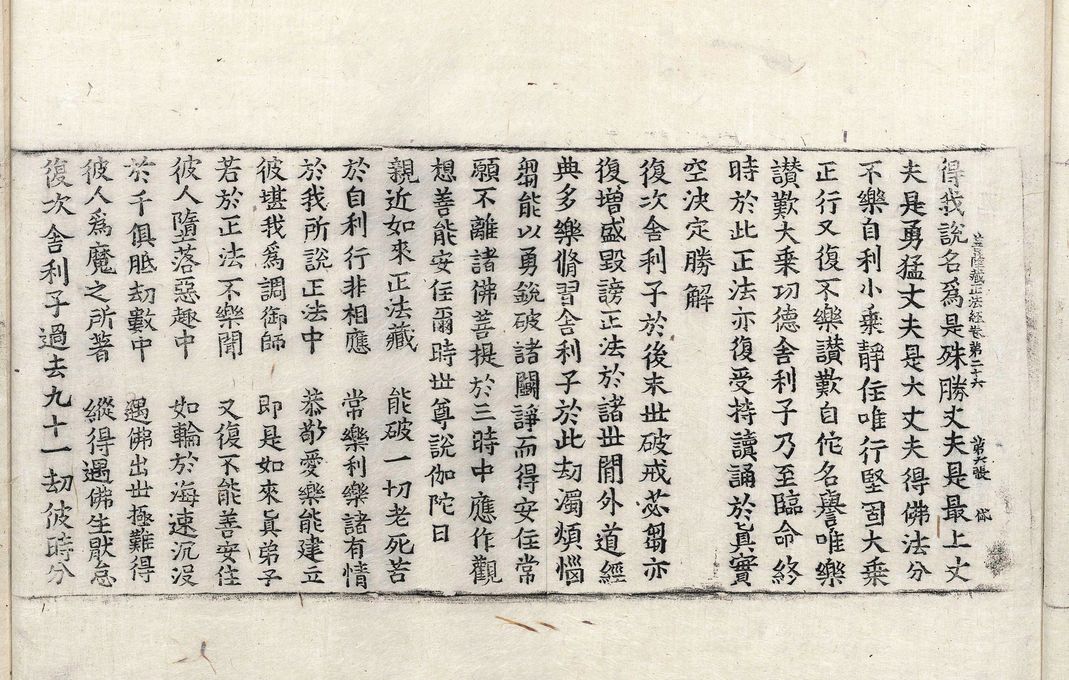 菩薩藏正法經卷第二十六 第六張
得我說名爲是殊勝丈夫是最上丈
夫是勇猛丈夫是大丈夫得佛法分
不樂自利小乘靜住唯行堅固大乘
正行又復不樂讃歎自佗名譽唯樂
讃歎大乘功德舍利子乃至臨命終
時於此正法亦復受持讀誦於眞實
空決定勝解
復次舍利子於後末世破戒苾芻亦
復增盛毀謗正法於諸世閒外道經
典多樂脩習舍利子於此劫濁煩惱
芻能以勇銳破諸鬭諍而得安住常
願不離諸佛菩提於三時中應作觀
想善能安住爾時世尊說伽陀曰
親近如來正法藏 能破一切老死苦
於自利行非相應 常樂利樂諸有情
於我所說正法中 恭敬愛樂能建立
彼堪我爲調御師 即是如來眞弟子
若於正法不樂聞 又復不能善安住
彼人墮落惡趣中 如輪於海速沉沒
於千俱胝劫數中 遇佛出世極難得
彼人爲魔之所著 縱得遇佛生厭怠
復次舍利子過去九十一劫彼時分